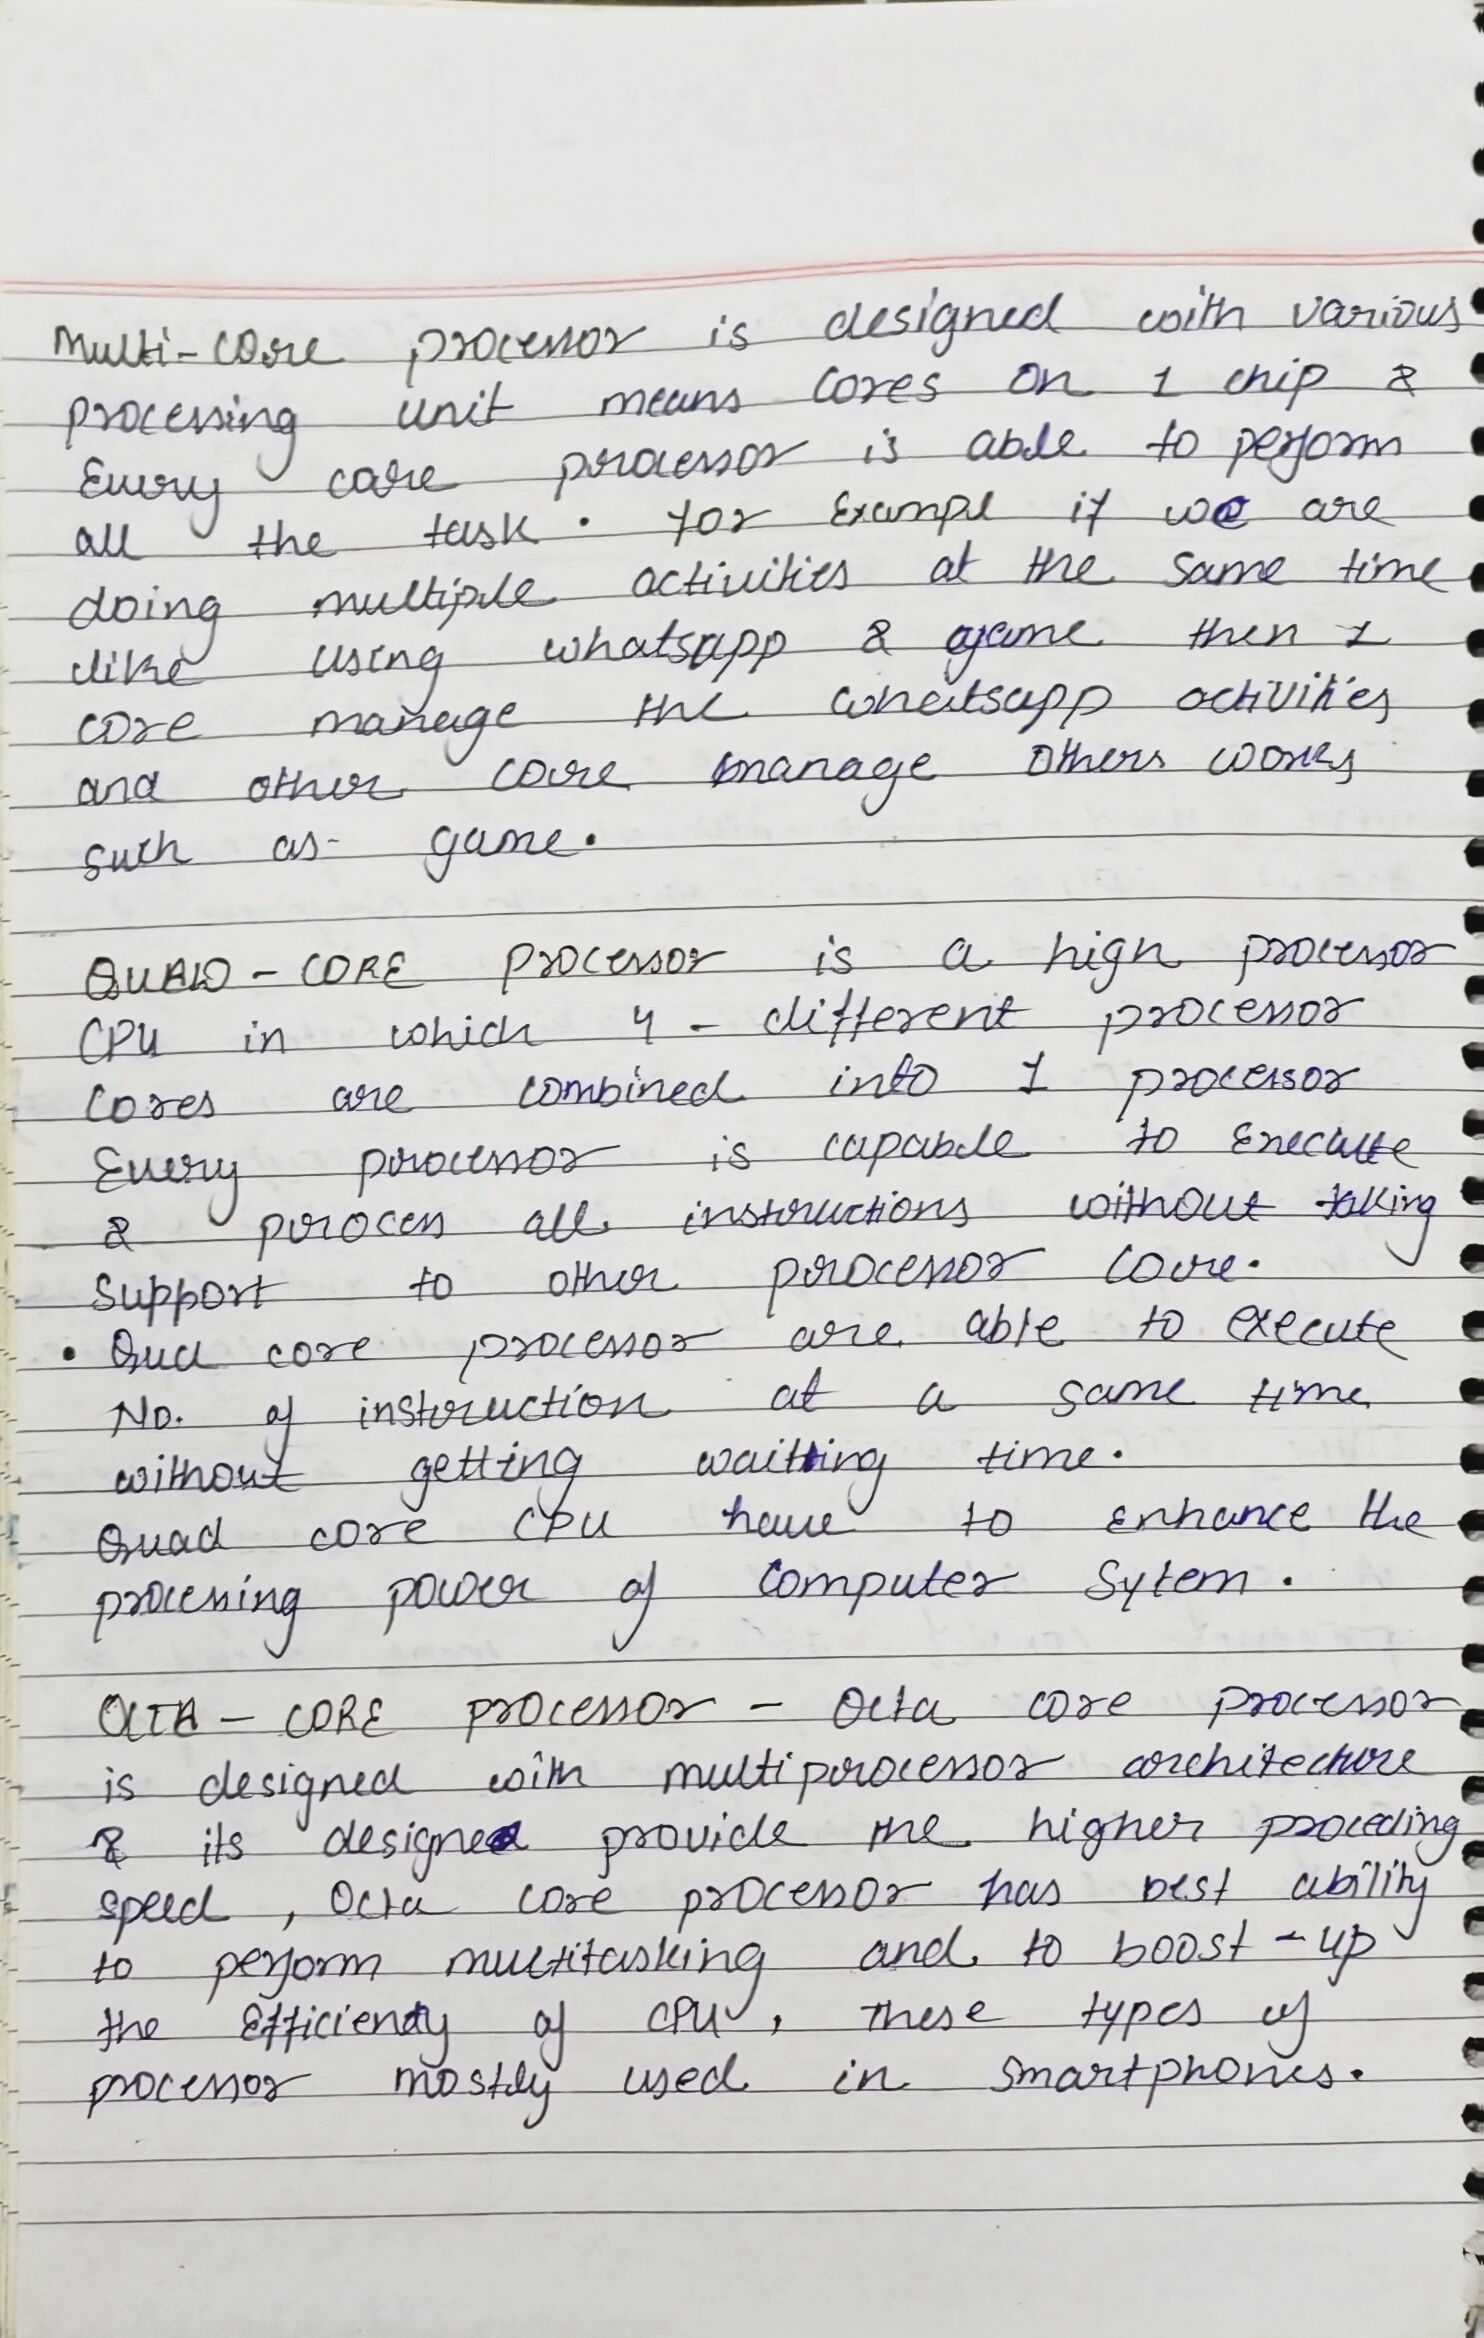 Multi-core processor is designed with various
processing unit means cores on 1 chip &
Every core processor is able to perform
all the task. for Exampl if we are
doing multiple activities at the same time
like using whatsapp & game then 1
core manage the whatsapp activities
and other core manage others works
such as game.
QUAD-CORE processor is a high processor
CPU in which 4-different processor
cores are combined into 1 processor
Every processor is capable to Execute
& process all instructions without taking
support to other processor core.
• Qud core processor are able to execute
No. of instruction at a same time
without getting waiting time.
Quad core CPU have to Enhance the
processing power of computer Sytem.
OCTA-CORE processor - Octa core processor
is designed with multiprocessor architecture
& its designed provide the higher proceding
speed, Octa core processor has best ability
to perform multitasking and to boost-up
the Efficiency of CPU, These types of
processor mostly used in smartphones.